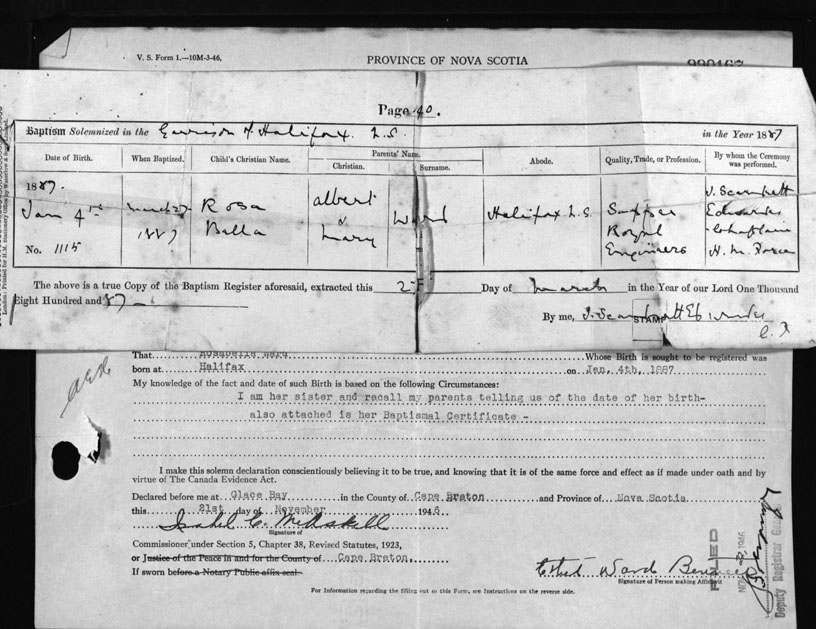 V. S. Form 1.—10M-3-46.
PROVINCE OF NOVA SCOTIA
990167
Page 40.
Baptism Solemnized in the Garrison of Halifax. N.S. in the Year 1887
Date of Birth. When Baptized. Child's Christian Name. Parents' Name. Abode. Quality, Trade, or Profession. By whom the Ceremony was performed.
Christian. Surname.
1887. Jan 4th
March 27 1887
Rosa Bella
Albert & Mary
Ward
Halifax N.S.
Sapper Royal Engineers
Edwards Chaplain H. M. Forces
No. 1115
The above is a true Copy of the Baptism Register aforesaid, extracted this Day of March in the Year of our Lord One Thousand
Eight Hundred and 87
By me,
STAMP
That Rosabelle Ward Whose Birth is sought to be registered was
born at Halifax on Jan. 4th, 1887
My knowledge of the fact and date of such Birth is based on the following Circumstances:
I am her sister and recall my parents telling us of the date of her birth-
also attached is her Baptismal Certificate -
I make this solemn declaration conscientiously believing it to be true, and knowing that it is of the same force and effect as if made under oath and by
virtue of The Canada Evidence Act.
Declared before me at Glace Bay in the County of Cape Breton and Province of Nova Scotia
this 21st day of November 1946
Isabel C. McAskill
Signature of
Commissioner under Section 5, Chapter 38, Revised Statutes, 1923,
or Justice of the Peace in and for the County of Cape Breton.
If sworn before a Notary Public affix seal
Ethel Ward
Signature of Person making Affidavit
For Information regarding the filling out of this Form, see Instructions on the reverse side.
FILED
Deputy Registrar General